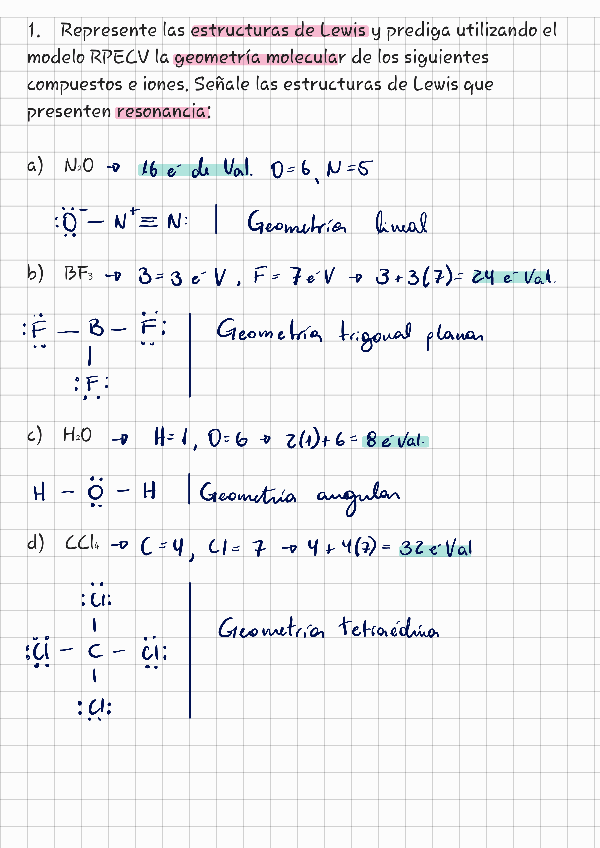 1. Represente las estructuras de Lewis y prediga utilizando el
modelo RPECV la geometría molecular de los siguientes
compuestos e iones. Señale las estructuras de Lewis que
presenten resonancia:
a) N₂O → 16 e⁻ de Val. O=6, N=5
:Ö⁻ — N⁺ ≡ N: | Geometría lineal
b) BF₃ → B = 3 e⁻ V, F = 7 e⁻ V → 3+3(7) = 24 e⁻ Val.
:F — B — F: | Geometría trigonal planar
|
:F:
c) H₂O → H=1, O=6 → 2(1)+6 = 8 e⁻ Val.
H — Ö — H | Geometría angular
d) CCl₄ → C = 4, Cl = 7 → 4+4(7) = 32 e⁻ Val
:Cl:
| Geometría tetraédrica
:Cl — C — Cl:
|
:Cl: